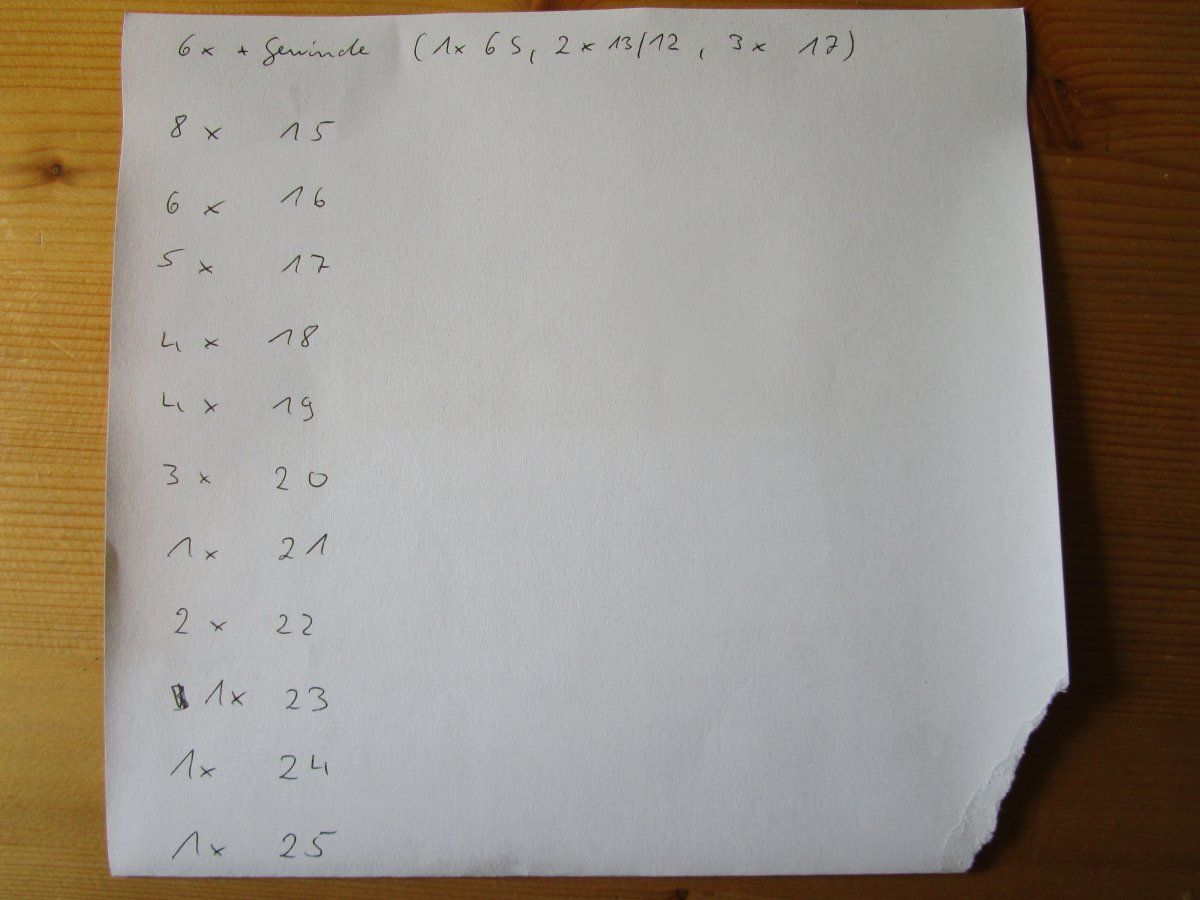 6x + Gewinde (1x 6S, 2x 13/12, 3x 17)
8x 15
6x 16
5x 17
4x 18
4x 19
3x 20
1x 21
2x 22
1x 23
1x 24
1x 25